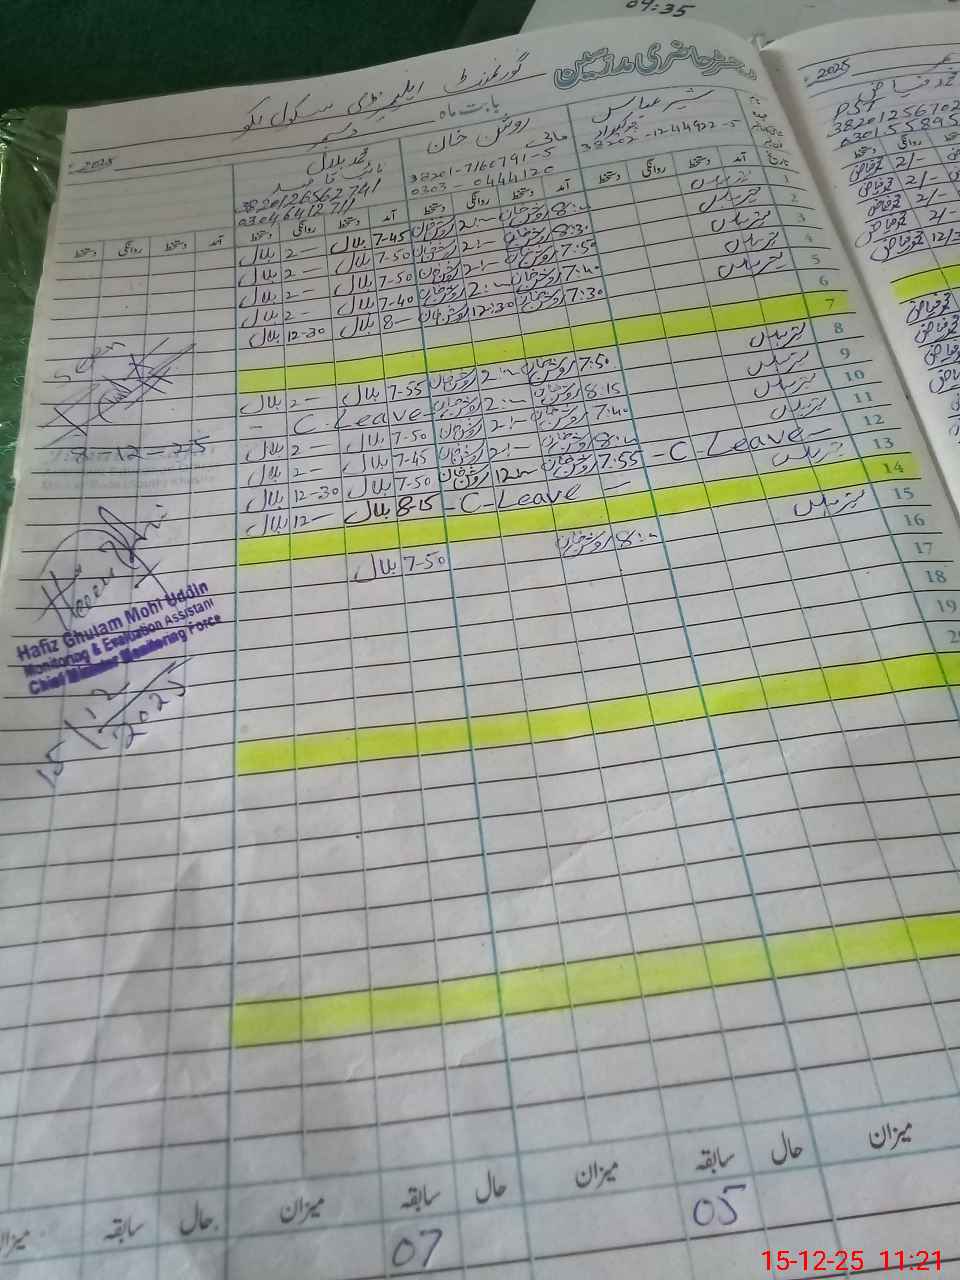 04:35
رجسٹر حاضری مدرسین
گورنمنٹ ایلیمنٹری سکول
بابت ماہ دسمبر 2025
شیر عباس
چوکیدار
38202-12-44922-5
روشن خان
مالی
38201-7160791-5
0303-0444120
محمد بلال
نائب قاصد
3820126562741
03046412711
تاریخ آمد دستخط روانگی دستخط آمد دستخط روانگی دستخط آمد دستخط روانگی دستخط آمد دستخط روانگی دستخط
1 8:00 روشن خان 2:- روشن خان 7-45 بلال 2- بلال
2 8:30 روشن خان 2:- روشن خان 7-50 بلال 2- بلال
3 7:50 روشن خان 2:- روشن خان 7-50 بلال 2- بلال
4 7:40 روشن خان 2:- روشن خان 7-40 بلال 2- بلال
5 7:30 روشن خان 12:30 روشن خان 8- بلال 12-30 بلال
6
7
8 7:50 روشن خان 2:- روشن خان 7-55 بلال 2- بلال
9 8:15 روشن خان 2:- روشن خان - C-Leave-
10 7:40 روشن خان 2:- روشن خان 7-50 بلال 2- بلال
11 8:00 روشن خان 2:- روشن خان 7-45 بلال 2- بلال
12 -C-Leave- 7:55 روشن خان 12:- روشن خان 7-50 بلال 12-30 بلال
13 -C-Leave- 8-15 بلال 12- بلال
14
15 8:00 روشن خان 7-50 بلال
16
17
18
19
20
8-12-25
Hafiz Ghulam Mohi Uddin
Monitoring & Evaluation Assistant
Chief Minister Monitoring Force
15/12/2025
میزان حال سابقہ میزان حال سابقہ میزان حال سابقہ میزان
05
07
2025
PST
آمد دستخط روانگی دستخط
2/-
2/-
2/-
2/-
12/3
15-12-25 11:21